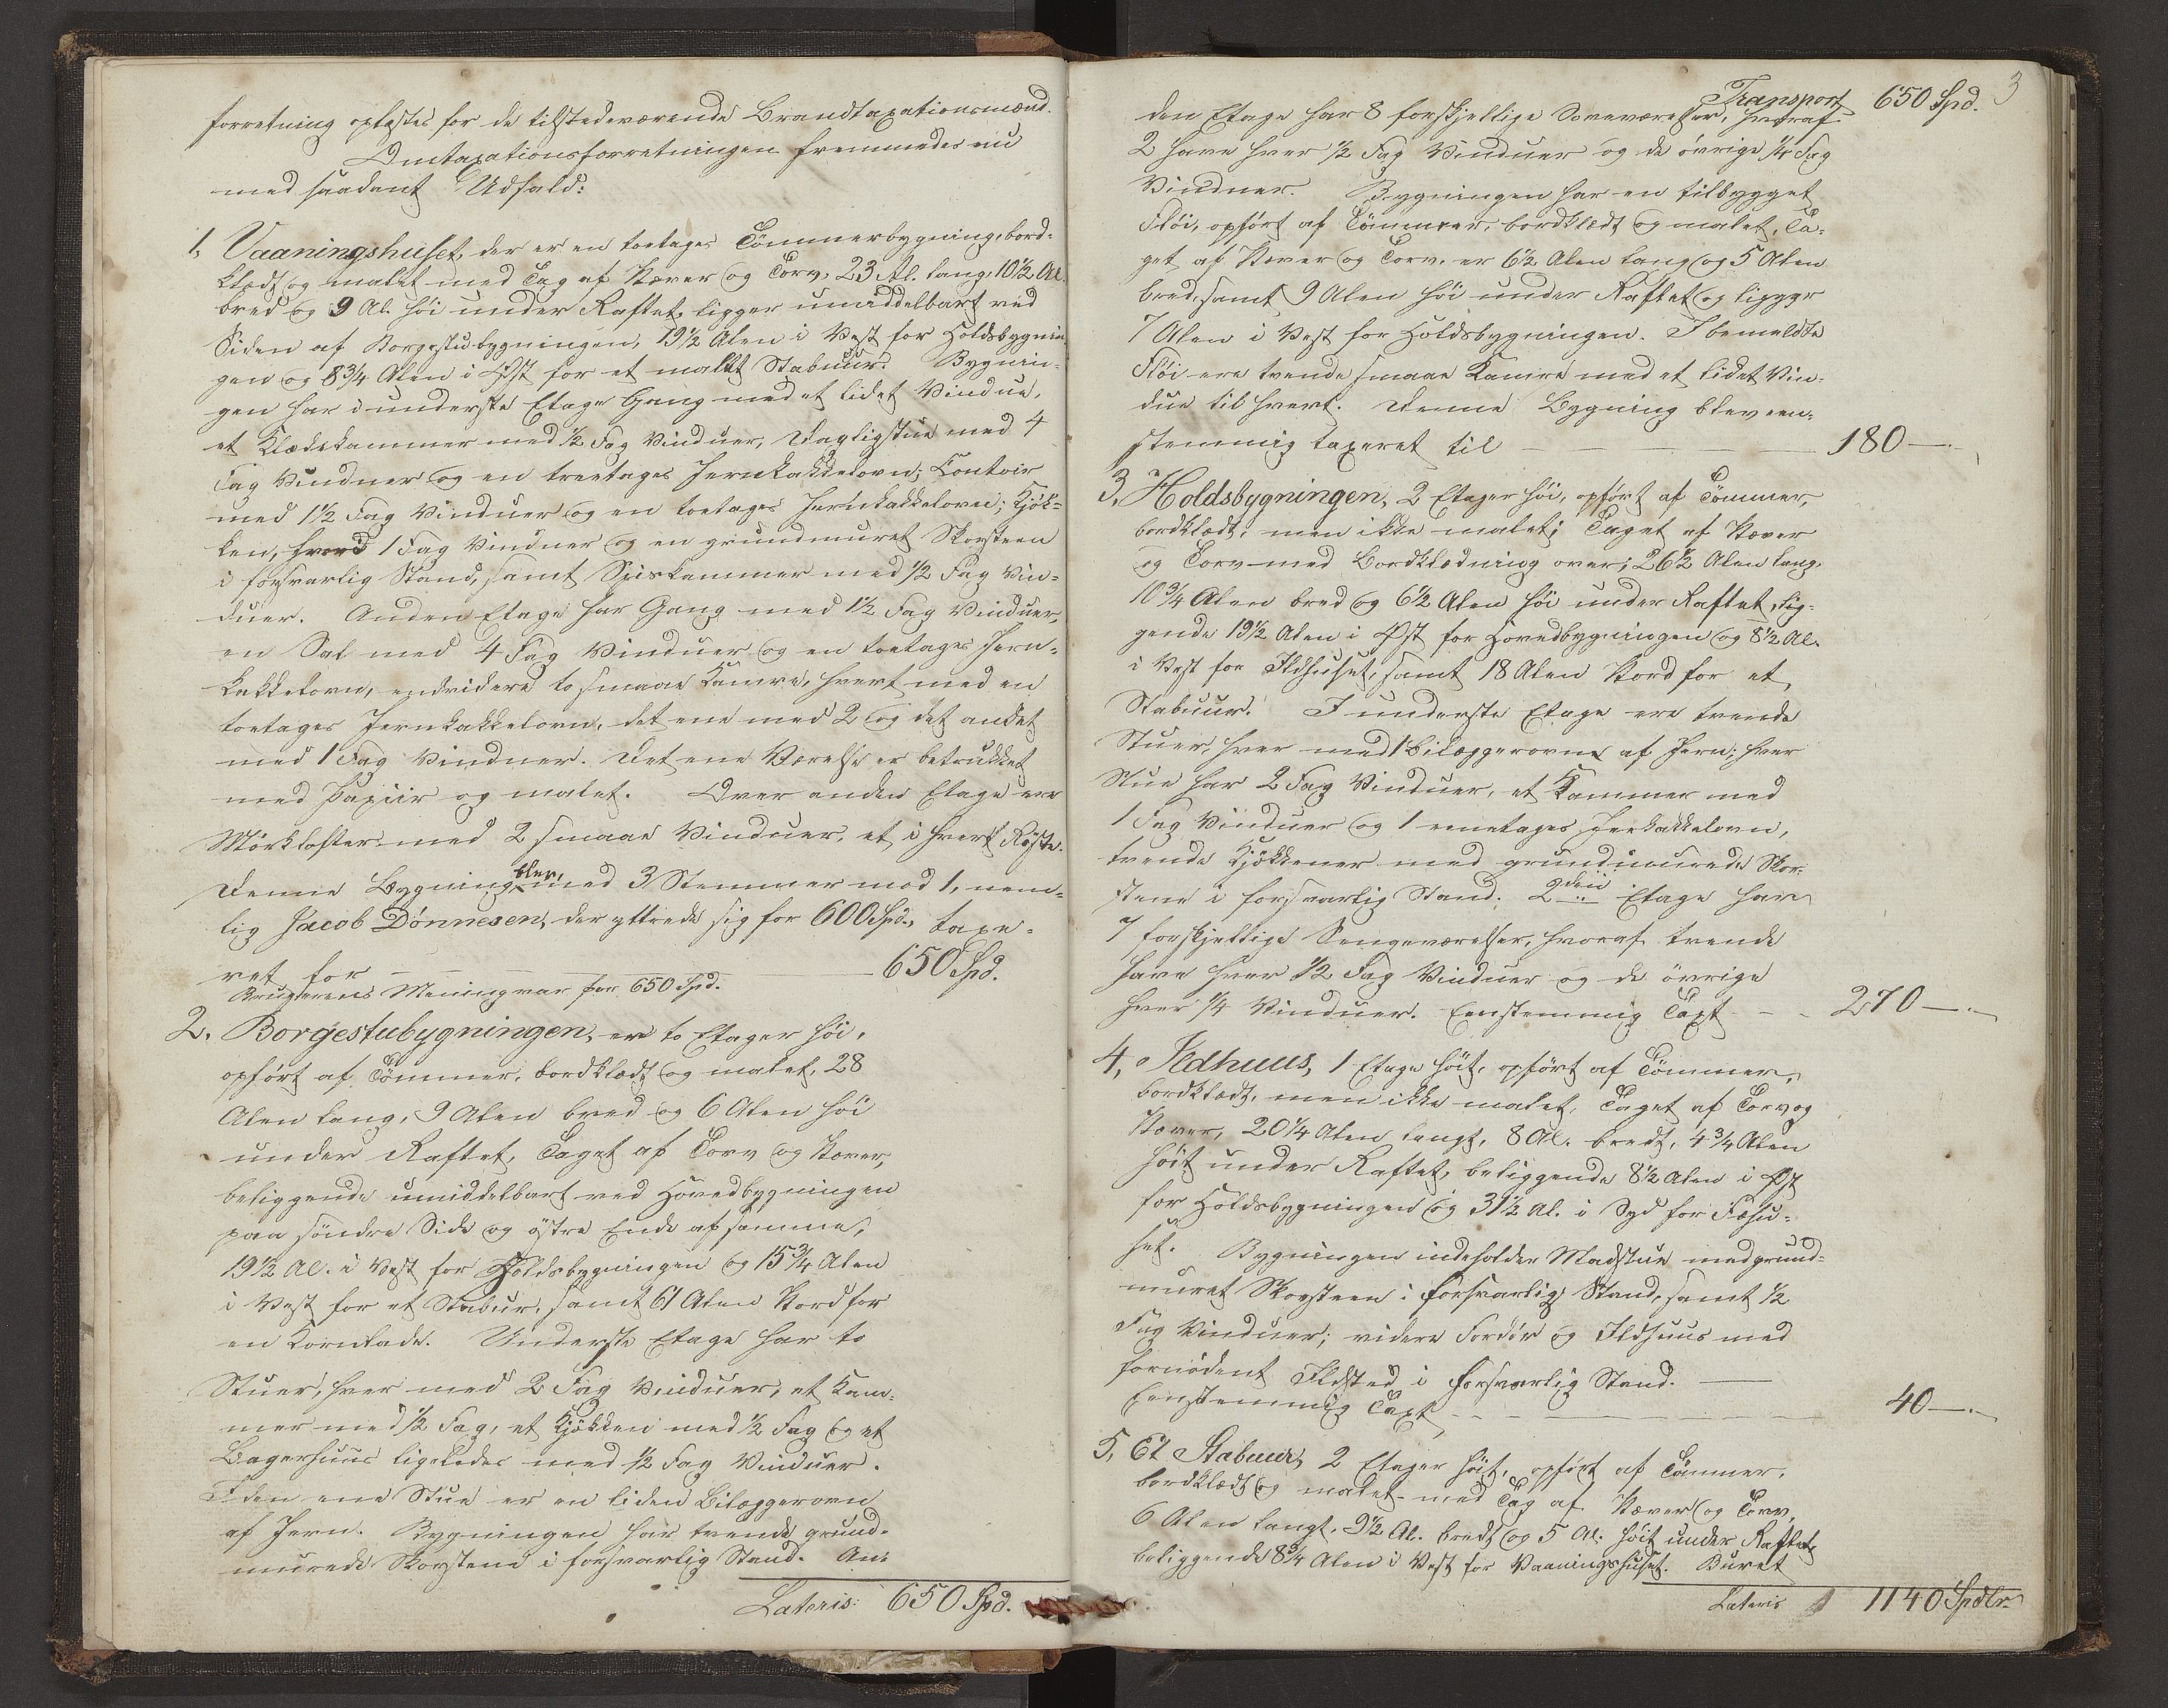 forretning oplæstes for de tilstedeværende Brandtaxationsmænd.
Omtaxationsforretningen fremmedes nu
med saadant Udfald:
1, Vaaningshuset, der er en toetages Tömmerbygning, bord-
klædt og malet med Tag af Næver og Torv, 23 Al. lang, 10 1/2 Al.
bred og 9 Al. höi under Raftet, ligger umiddelbart ved
Siden af Borgestubygningen, 19 1/2 Alen i Vest for Holdsbygnin-
gen og 8 3/4 Alen i Øst for et malet Stabuur. Bygnin-
gen har i underste Etage Gang med et lidet Vindue,
et Klædekammer med 1/2 Fag Vinduer, Dagligstue med 4
Fag Vinduer og en treetages Jernkakkelovn; Contoir
med 1 1/2 Fag Vinduer og en toetages Jernkakkelovn; Kjök-
ken, hvori 1 Fag Vinduer og en grundmuret Skorsteen
i forsvarlig Stand, samt Spiskammer med 1/2 Fag Vin-
duer. Anden Etage har Gang med 1 1/2 Fag Vinduer,
en Sal med 4 Fag Vinduer og en toetages Jern-
kakkelovn, endvidere to smaae Kamre, hvert med en
toetages Jernkakkelovn, det ene med 2 og det andet
med 1 Fag Vinduer. Det ene Værelse er betrukket
med Papiir og malet. Over anden Etage ere
Mörklofter med 2 smaae Vinduer, et i hvert Röste.
Denne Bygning blev, med 3 Stemmer mod 1, nem-
lig Jacob Dønnesen, der yttrede sig for 600 Spd., taxe-
ret for 650 Spd.
Brugerens Mening var for 650 Spd.
2. Borgestubygningen, er to Etager höi,
opfört af Tömmer, bordklædt og malet, 28
Alen lang, 9 Alen bred og 6 Alen höi
under Raftet, Taget af Torv og Næver,
beliggende umiddelbart ved Hovedbygningen
paa söndre Side og östre Ende af samme,
19 1/2 Al. i Vest for Holdsbygningen og 15 3/4 Alen
i Vest for et Stabur, samt 61 Alen Nord for
en Kornlade. Underste Etage har to
Stuer, hver med 2 Fag Vinduer, et Kam-
mer med 1/2 Fag, et Kjökken med 1/2 Fag og et
Bagerhuus ligeledes med 1/2 Fag Vinduer.
I den ene Stue er en liden Bilæggerovn
af Jern. Bygningen har tvende grund-
murede Skorstene i forsvarlig Stand. An-
Lateris: 650 Spd.
3
Transport 650 Spd.
den Etage har 8 forskjellige Soveværelser, hvoraf
2 have hver 1/2 Fag Vinduer og de övrige 1/4 Fag
Vinduer. Bygningen har en tilbygget
Flöi, opfört af Tömmer, bordklædt og malet, Ta-
get af Næver og Torv, er 6 1/2 Alen lang og 5 Alen
bred, samt 9 Alen höi under Raftet og ligger
7 Alen i Vest for Holdsbygningen. I bemeldte
Flöi ere tvende smaae Kamre med et lidet Vin-
due til hvert. Denne Bygning blev een-
stemmig taxeret til 180 —
3, Holdsbygningen, 2 Etager höi, opfört af Tömmer,
bordklædt, men ikke malet; Taget af Næver
og Torv med Bordklædning over; 26 1/2 Alen lang,
10 3/4 Alen bred og 6 1/2 Alen höi under Raftet, lig-
gende 19 1/2 Alen i Øst for Hovedbygningen og 8 1/2 Al.
i Vest for Ildhuset, samt 18 Alen Nord for et
Stabuur. I underste Etage ere tvende
Stuer, hver med 1 Bilæggerovne af Jern; hver
Stue har 2 Fag Vinduer, et Kammer med
1 Fag Vinduer og 1 eenetages Jerkakkelovn,
tvende Kjökkener med grundmurede Skor-
stene i forsvarlig Stand. 2den Etage har
7 forskjellige Sengeværelser, hvoraf tvende
have hver 1/2 Fag Vinduer og de övrige
hver 1/4 Vinduer. Eenstemmig Taxt 270 —
4, Ildhuus, 1 Etage höit, opfört af Tömmer,
bordklædt, men ikke malet, Taget af Torv og
Næver, 20 1/4 Alen langt, 8 Al. bredt, 4 3/4 Alen
höit under Raftet, beliggende 8 1/2 Alen i Øst
for Holdsbygningen og 31 1/2 Al. i Syd for Fæhu-
set. Bygningen indeholder Madstue med grund-
muret Skorsteen i forsvarlig Stand, samt 1/2
Fag Vinduer; videre Fordör og Ildhuus med
fornödent Ildsted i forsvarlig Stand.
Eenstemmig Taxt 40 —
5, Et Stabuur, 2 Etager höit, opfört af Tömmer,
bordklædt og malet med Tag af Næver og Torv,
6 Alen langt, 9 1/2 Al. bredt og 5 Al. höit under Raftet,
beliggende 8 3/4 Alen i Vest for Vaaningshuset. Buret
Lateris 1140 Spdlr.